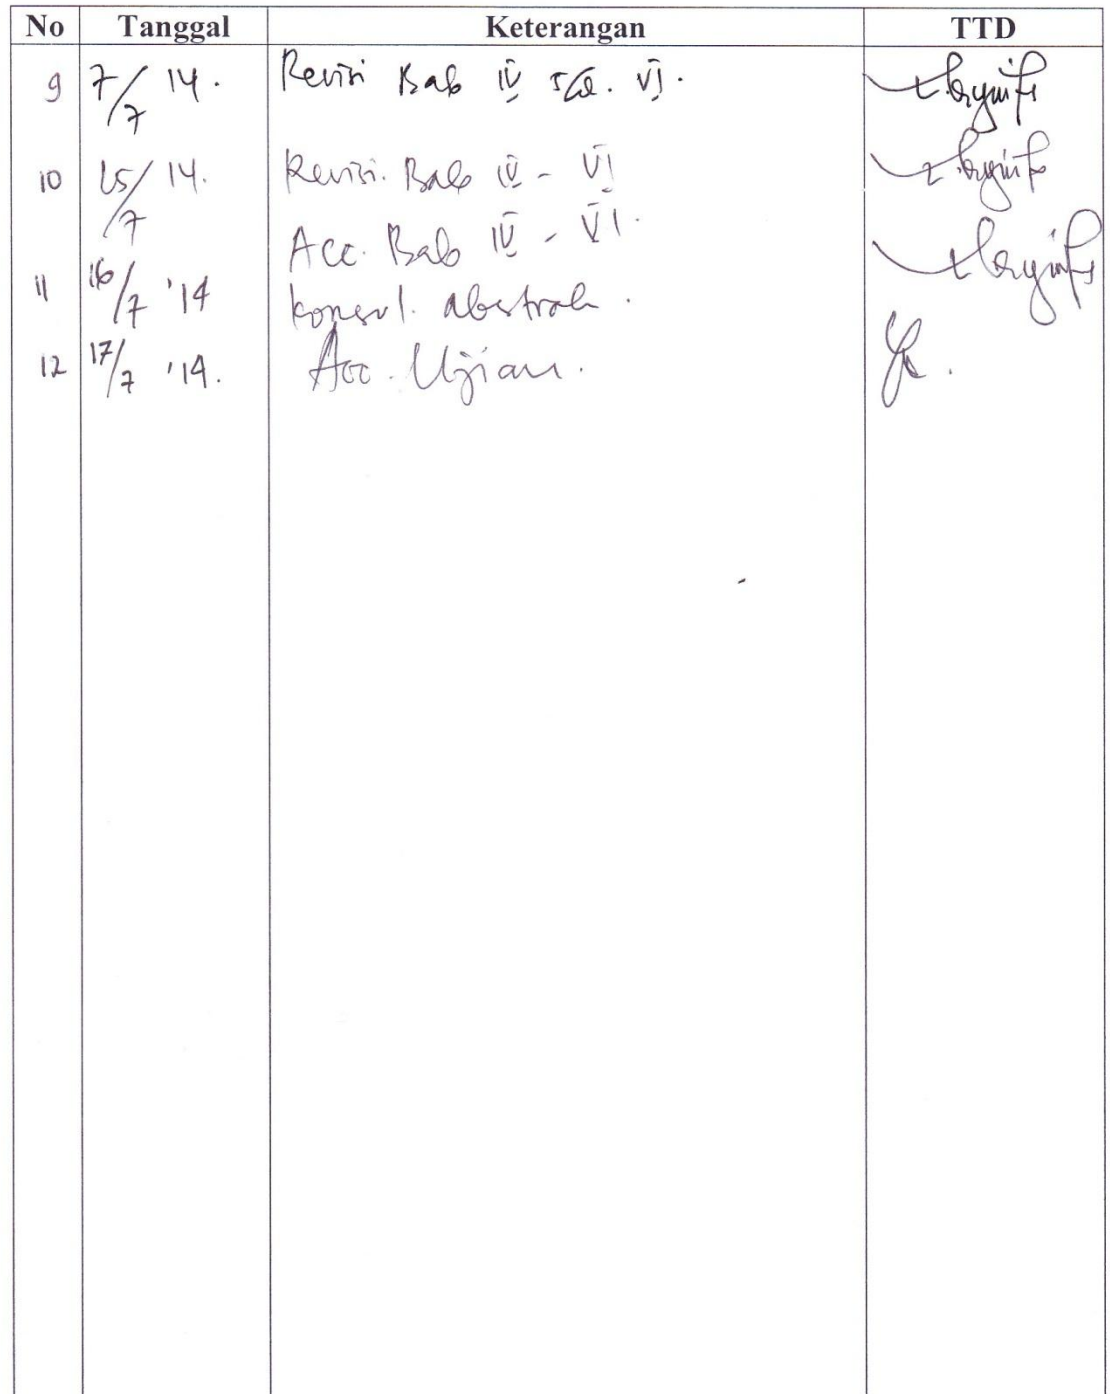 No Tanggal Keterangan TTD
9 7/7 14. Revisi Bab IV s/d. VI.
10 15/7 14. Revisi. Bab IV - VI
Acc. Bab IV - VI.
11 16/7 '14 konsul. abstrak.
12 17/7 '14. Acc. Ujian.